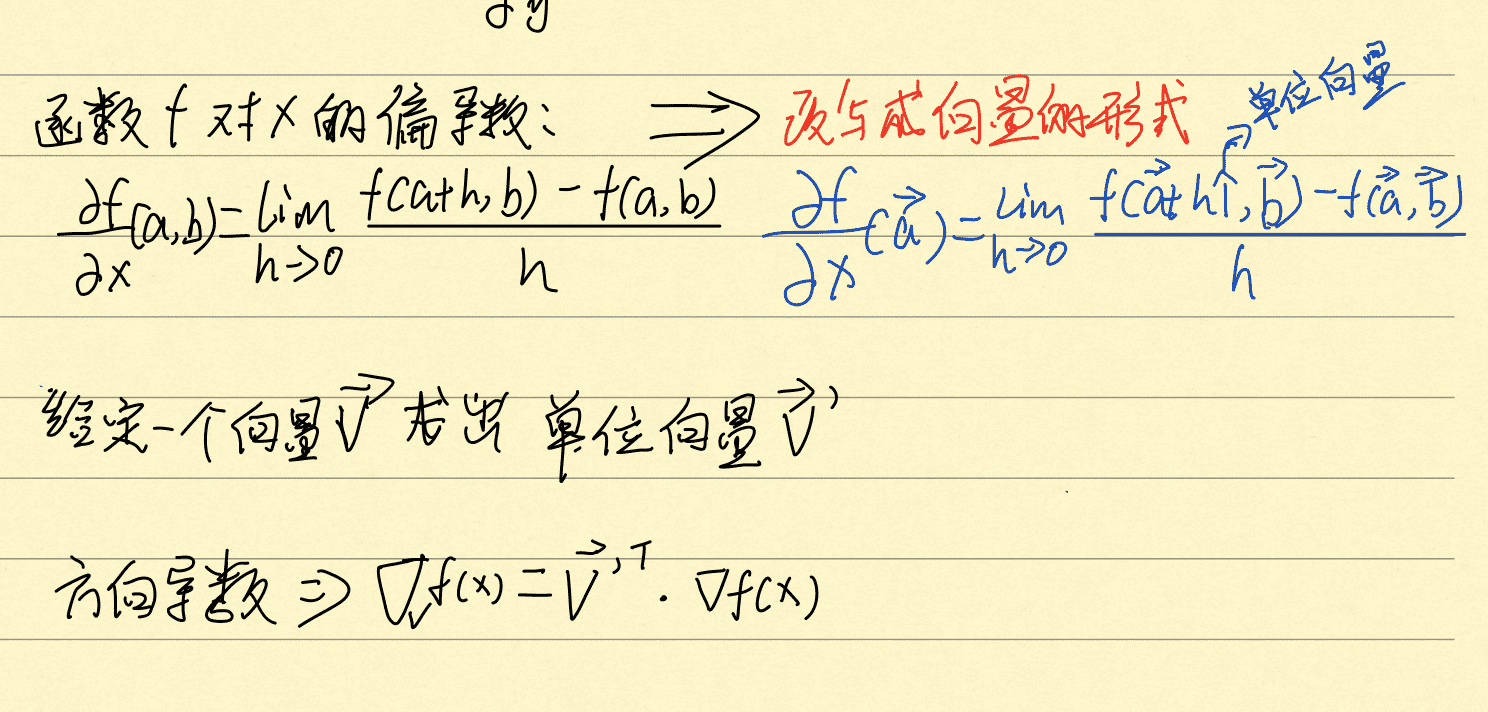 ∂y
函数 f 对 x 的偏导数: ⇒ 改写成向量的形式 → 单位向量
∂f/∂x (a,b) = lim h→0 f(a+h, b) - f(a, b) / h ∂f/∂x (a⃗) = lim h→0 f(a⃗+hi⃗, b⃗) - f(a⃗, b⃗) / h
给定一个向量 V⃗ 求出 单位向量 V⃗'
方向导数 ⇒ ∇ᵥf(x) = V⃗'ᵀ · ∇f(x)